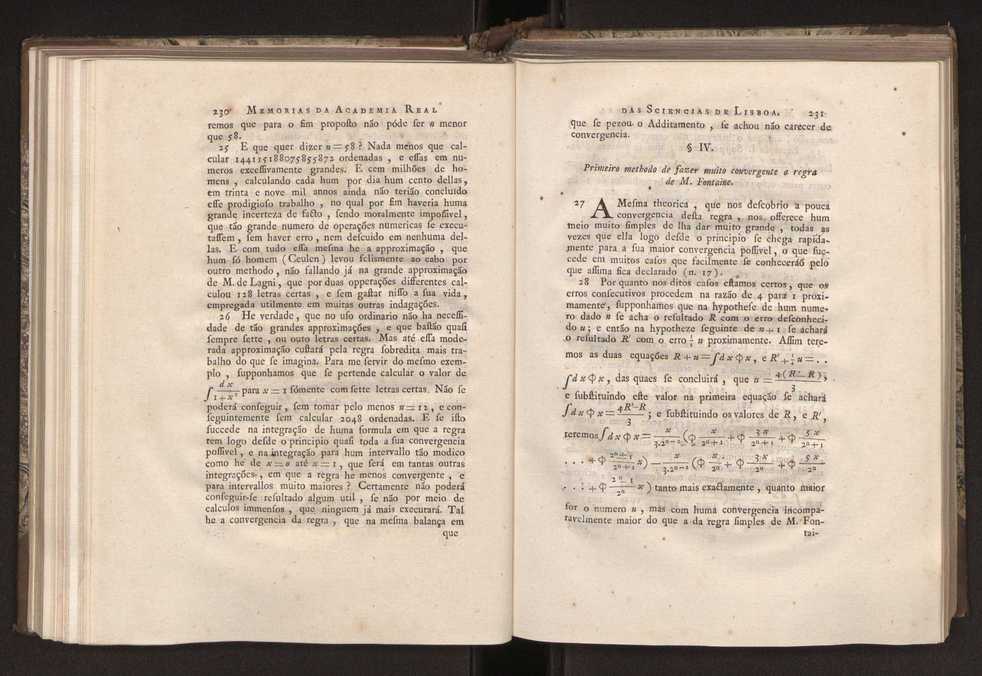 230 MEMORIAS DA ACADEMIA REAL
remos que para o fim propoſto não póde ſer n menor
que 58.
25 E que quer dizer n = 58? Nada menos que cal-
cular 144115188075855872 ordenadas, e eſſas em nu-
meros exceſſivamente grandes. E cem milhões de ho-
mens, calculando cada hum por dia hum cento dellas,
em trinta e nove mil annos ainda não terião concluido
eſſe prodigioſo trabalho, no qual por fim haveria huma
grande incerteza de facto, ſendo moralmente impoſſivel,
que tão grande numero de operações numericas ſe execu-
taſſem, ſem haver erro, nem deſcuido em nenhuma del-
las. E com tudo eſſa meſma he a approximação, que
hum ſó homem (Ceulen) levou feliſmente ao cabo por
outro methodo, não fallando já na grande approximação
de M. de Lagni, que por duas opperações differentes cal-
culou 128 letras certas, e ſem gaſtar niſſo a ſua vida,
empregada utilmento em muitas outras indagações.
26 He verdade, que no uſo ordinario não ha neceſſi-
dade de tão grandes approximações, e que baſtão quaſi
ſempre ſette, ou outo letras certas. Mas até eſſa mode-
rada approximação cuſtará pela regra ſobredita mais tra-
balho do que ſe imagina. Para me ſervir do meſmo exem-
plo, ſupponhamos que ſe pertende calcular o valor de
∫ dx/(1+x²) para x = 1 ſómente com ſette letras certas. Não ſe
poderá conſeguir, ſem tomar pelo menos n = 12, e con-
ſeguintemente ſem calcular 2048 ordenadas. E ſe iſto
ſuccede na integração de huma formula em que a regra
tem logo deſde o principio quaſi toda a ſua convergencia
poſſivel, e na integração para hum intervallo tão modico
como he de x = 0 até x = 1, que ſerá em tantas outras
integrações, em que a regra he menos convergente, e
para intervallos muito maiores? Certamente não poderá
conſeguir-ſe reſultado algum util, ſe não por meio de
calculos immenſos, que ninguem já mais executará. Tal
he a convergencia da regra, que na meſma balança em
que
DAS SCIENCIAS DE LISBOA. 231
que ſe pezou o Additamento, ſe achou não carecer de
convergencia.
§ IV.
Primeiro methodo de fazer muito convergente a regra
de M. Fontaine.
27 A Meſma theorica, que nos deſcobrio a pouca
convergencia deſta regra, nos offerece hum
meio muito ſimples de lha dar muito grande, todas as
vezes que ella logo deſde o principio ſe chega rapida-
mente para a ſua maior convergencia poſſivel, o que ſuc-
cede em muitos caſos que facilmente ſe conhecerão pelo
que aſſima fica declarado (n. 17).
28 Por quanto nos ditos caſos eſtamos certos, que os
erros conſecutivos procedem na razão de 4 para 1 proxi-
mamente, ſupponhamos que na hypotheſe de hum nume-
ro dado n ſe acha o reſultado R com o erro deſconheci-
do u; e então na hypotheze ſeguinte de n+1 ſe achará
o reſultado R' com o erro ¼ u proximamente. Aſſim tere-
mos as duas equações R + u = ∫dxϕx, e R' + ¼ u = . .
∫dxϕx, das quaes ſe concluirá, que u = 4(R'−R)/3,
e ſubſtituindo eſte valor na primeira equação ſe achará
∫dxϕx = (4R'−R)/3; e ſubſtituindo os valores de R, e R',
teremos ∫dxϕx = x/(3.2ⁿ⁻²) (ϕ x/2ⁿ⁺¹ + ϕ 3x/2ⁿ⁺¹ + ϕ 5x/2ⁿ⁺¹
. . . + ϕ (2ⁿ⁺¹−1)/2ⁿ⁺¹ x) − x/(3.2ⁿ⁻¹) (ϕ x/2ⁿ + ϕ 3x/2ⁿ + ϕ 5x/2ⁿ
. . . + ϕ (2ⁿ−1)/2ⁿ x) tanto mais exactamente, quanto maior
for o numero n, mas com huma convergencia incompa-
ravelmente maior do que a da regra ſimples de M. Fon-
tai-